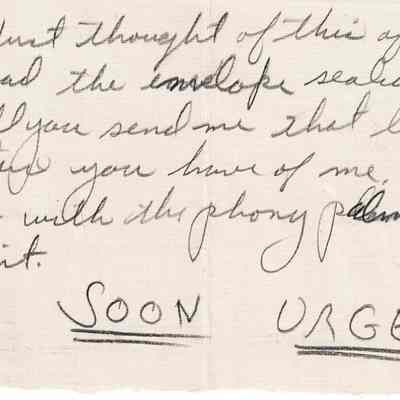 Just thought of this a
ad the envelope seal
you send me that
you have of me.
with the phony palm
it.
SOON URGE